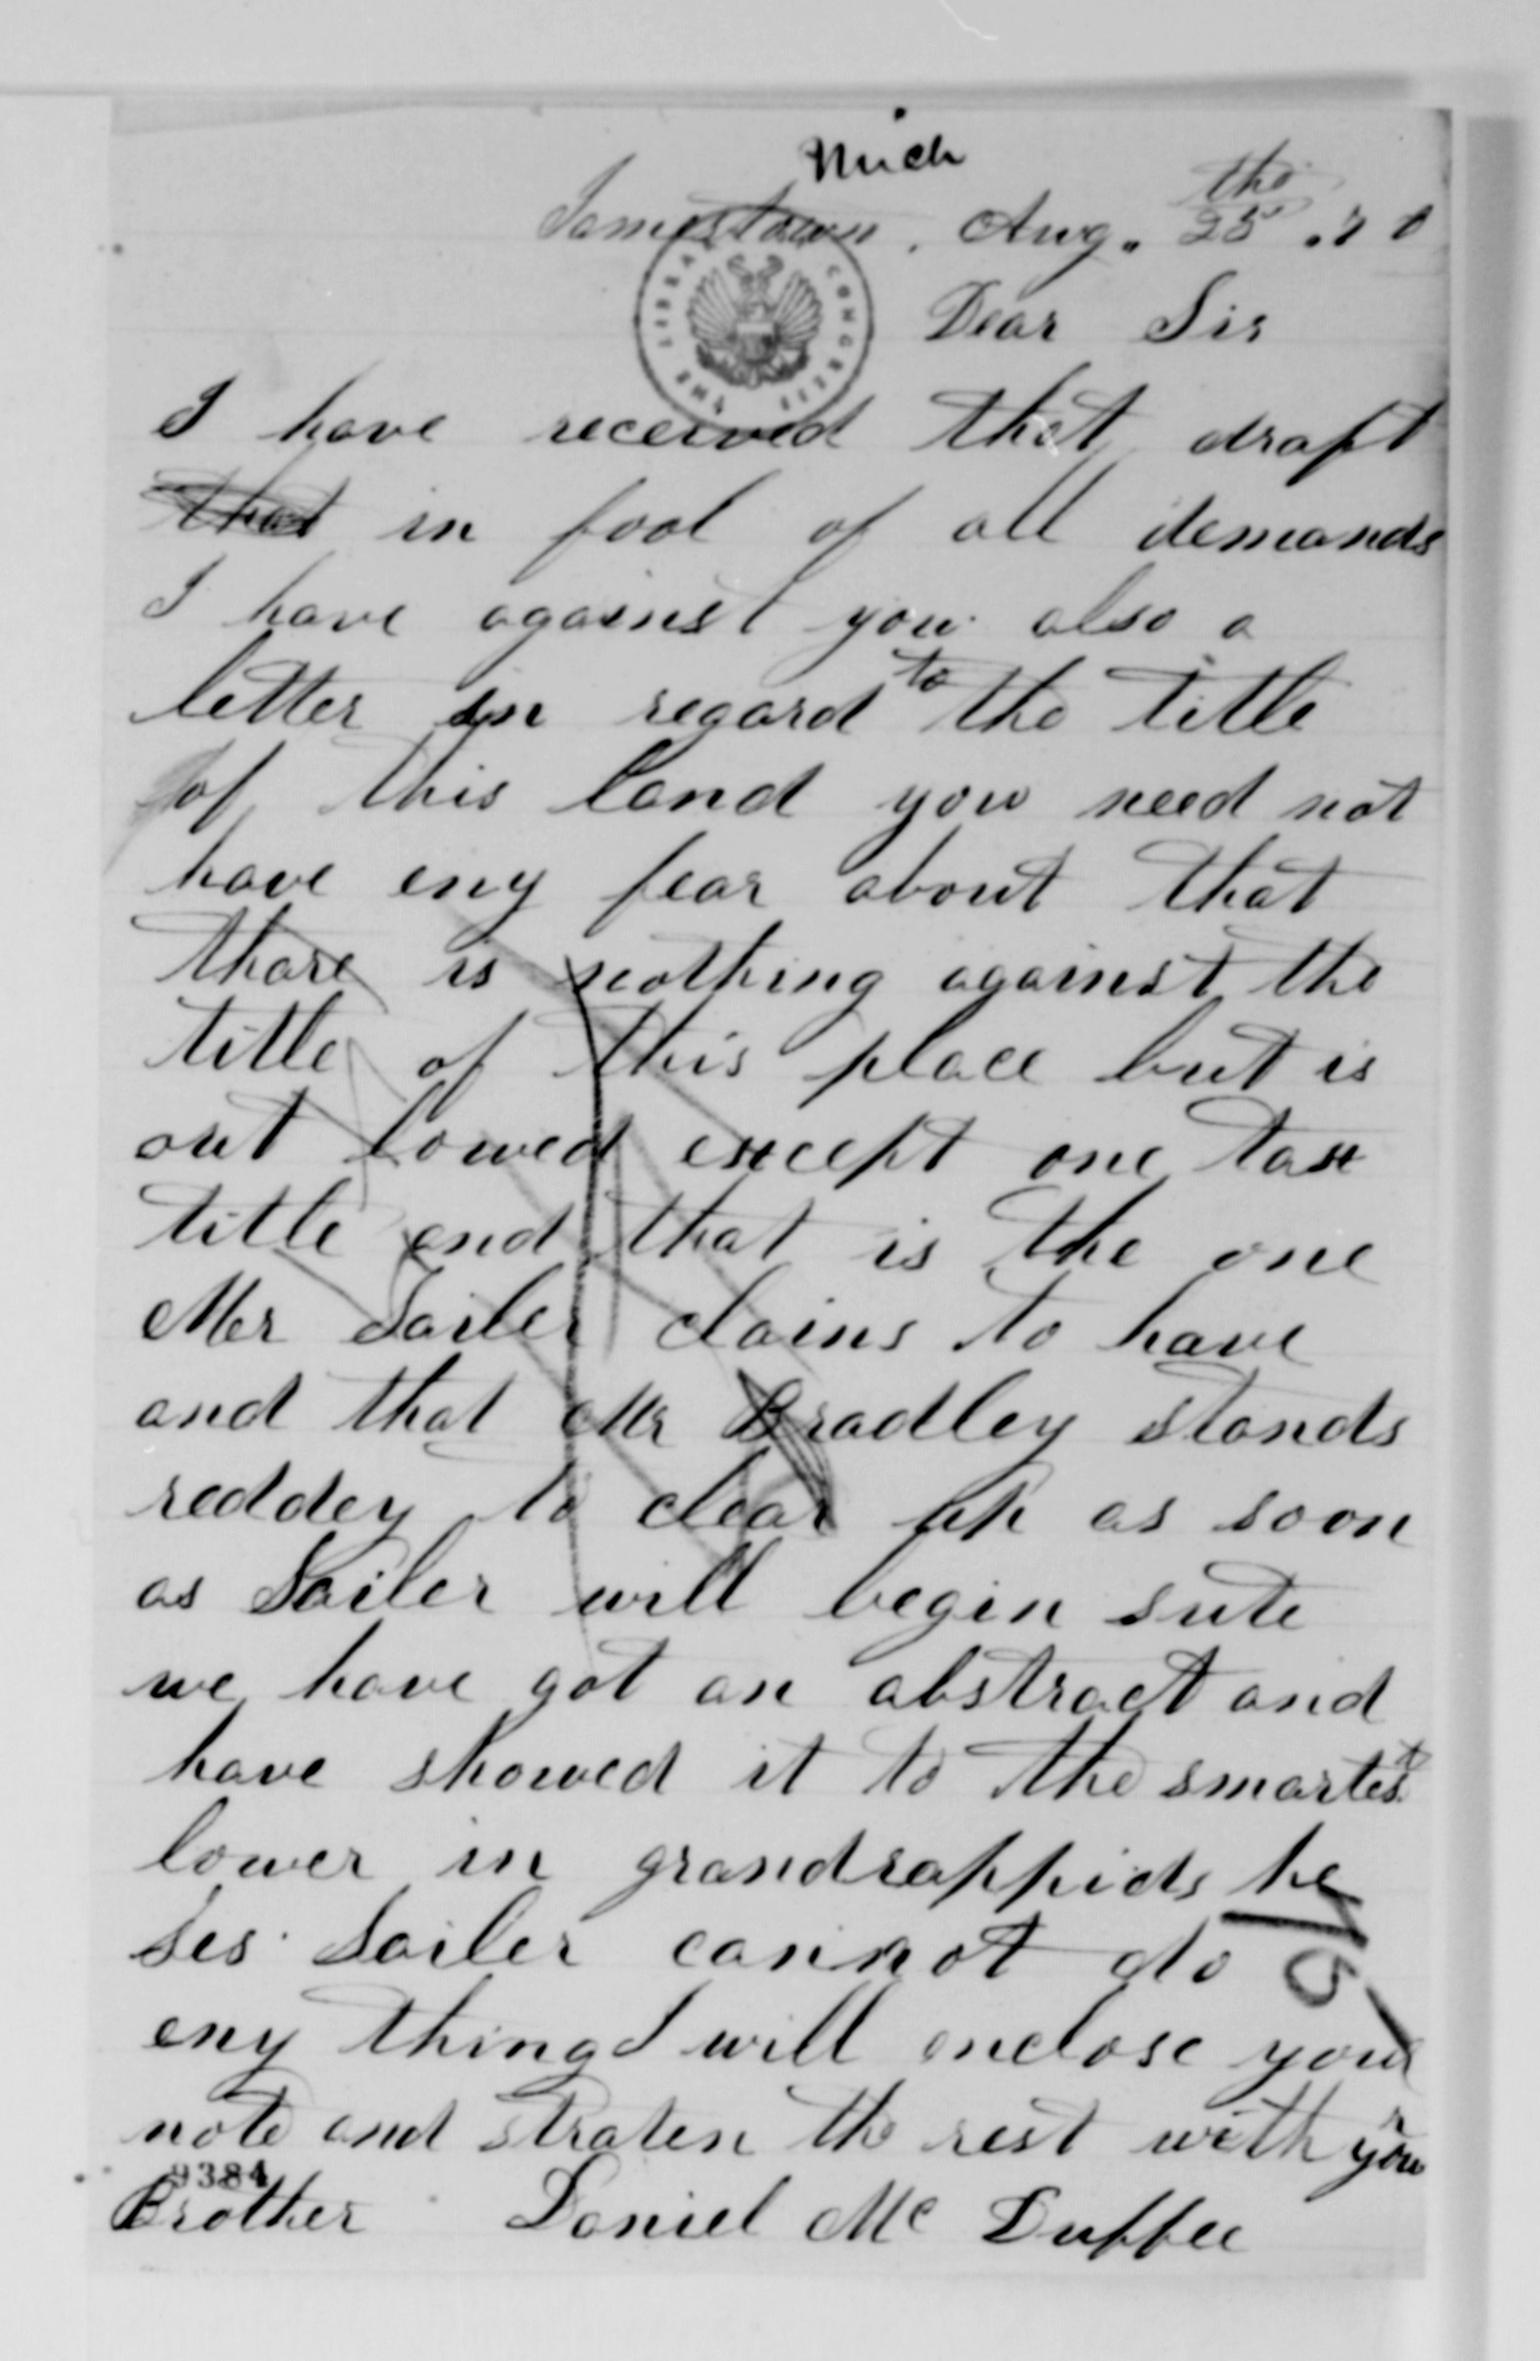 Mich
Jamestown. Aug. 25th .70
THE LIBRARY CONGRESS
Dear Sir
I have received that draft
that in fool of all demands
I have against you also a
letter in regard to the title
of this land you need not
have eny fear about that
thare is nothing against the
title of this place but is
out lowed except one tax
title and that is the one
Mr Sailer clains to have
and that Mr Bradley stands
reddey to clear up as soon
as Sailer will begin sute
we have got an abstract and
have showed it to the smartest
lower in grandrappids he
ses Sailer cannot do
eny thing I will enclose your
note and straten the rest with your
9384
Brother Daniel Mc Duffee